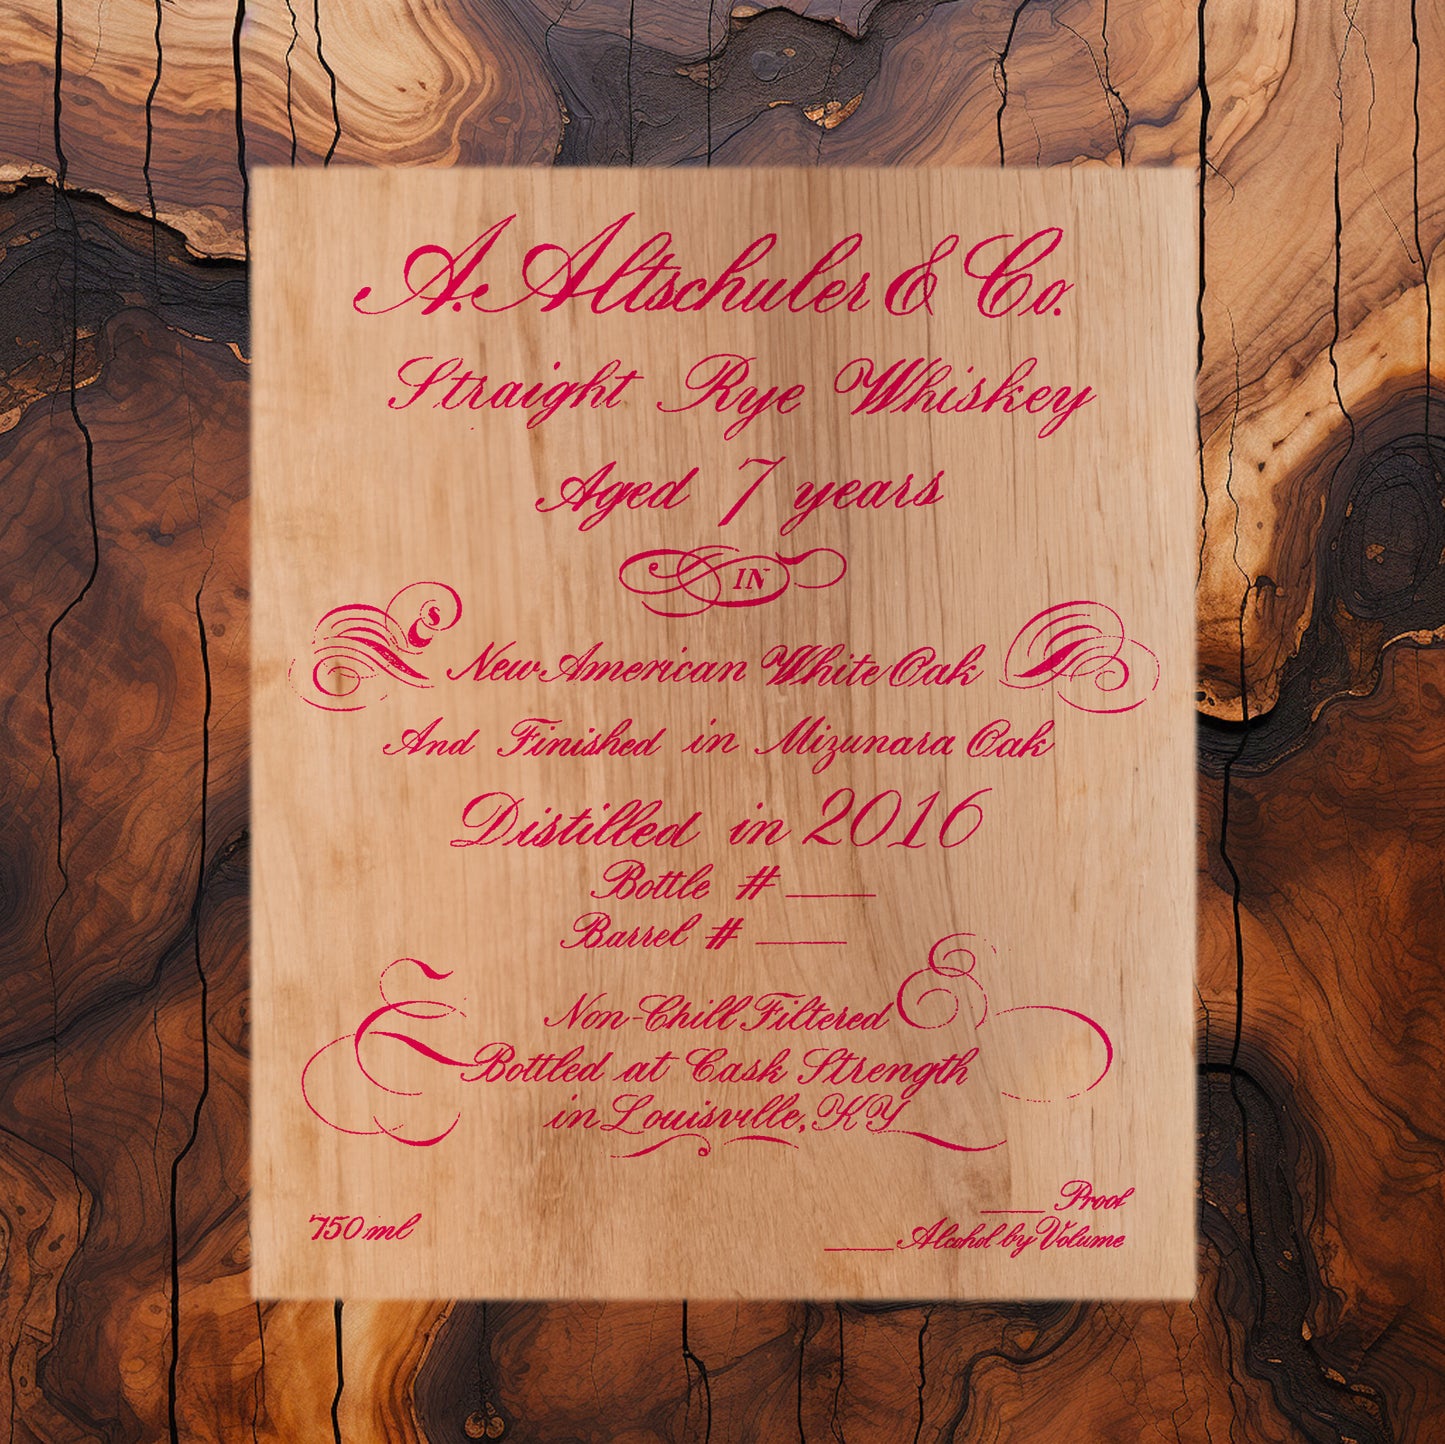 A. Altschuler & Co.
Straight Rye Whiskey
Aged 7 years
IN
New American White Oak
And Finished in Mizunara Oak
Distilled in 2016
Bottle # ____
Barrel # ____
Non-Chill Filtered
Bottled at Cask Strength
in Louisville, KY
750 ml
____ Proof
____ Alcohol by Volume